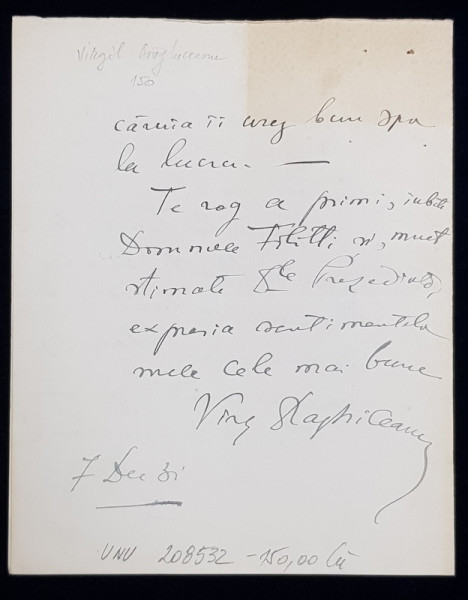 Virgil Drăghiceanu
150
căruia îi urez bun spor
la lucru. —
Te rog a primi, iubite
Domnule Filitti și, mult
stimate Dle Președinte,
expresia sentimentelor
mele cele mai bune
Virg Drăghiceanu
7 Dec 31
UNU 208532 - 150,00 lei